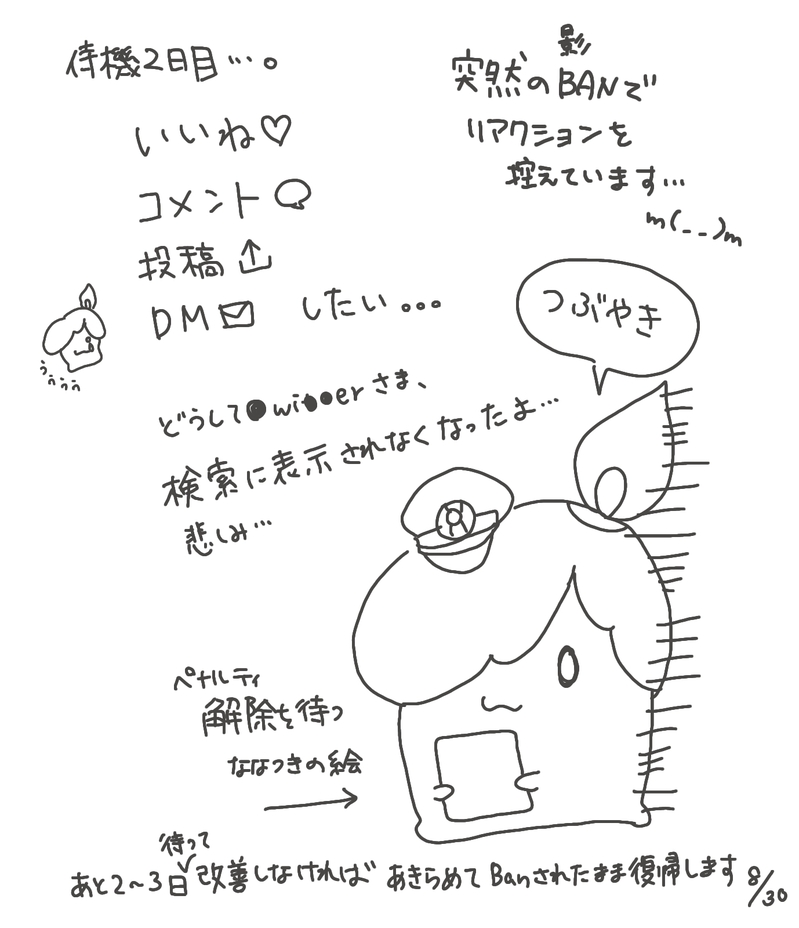 待機2日目…。
いいね♡
コメント
投稿
DM したい…
うぅぅぅ
影
突然のBANで
リアクションを
控えています…
m(_ _)m
つぶやき
どうして●wi●●erさま、
検索に表示されなくなったよ…
悲しみ…
ペナルティ
解除を待つ
ななつきの絵
待って
あと2〜3日改善しなければ あきらめてBanされたまま復帰します 8/30